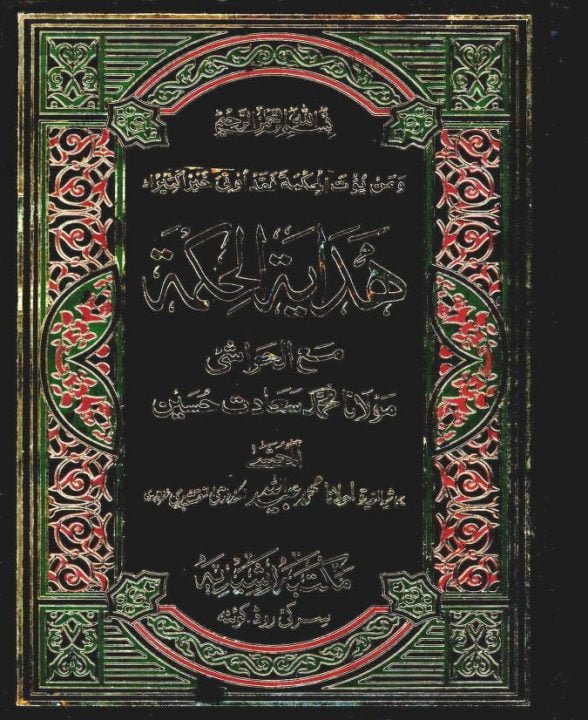 بسم الله الرحمن الرحيم
ومن يؤت الحكمة فقد أوتي خيرا كثيرا
هداية الحكمة
مع الحواشي
مولانا محمد سعادت حسين
المحشى
مولانا محمد عبيد
مكتبه رشيديه
سركى روڈ كوئٹه